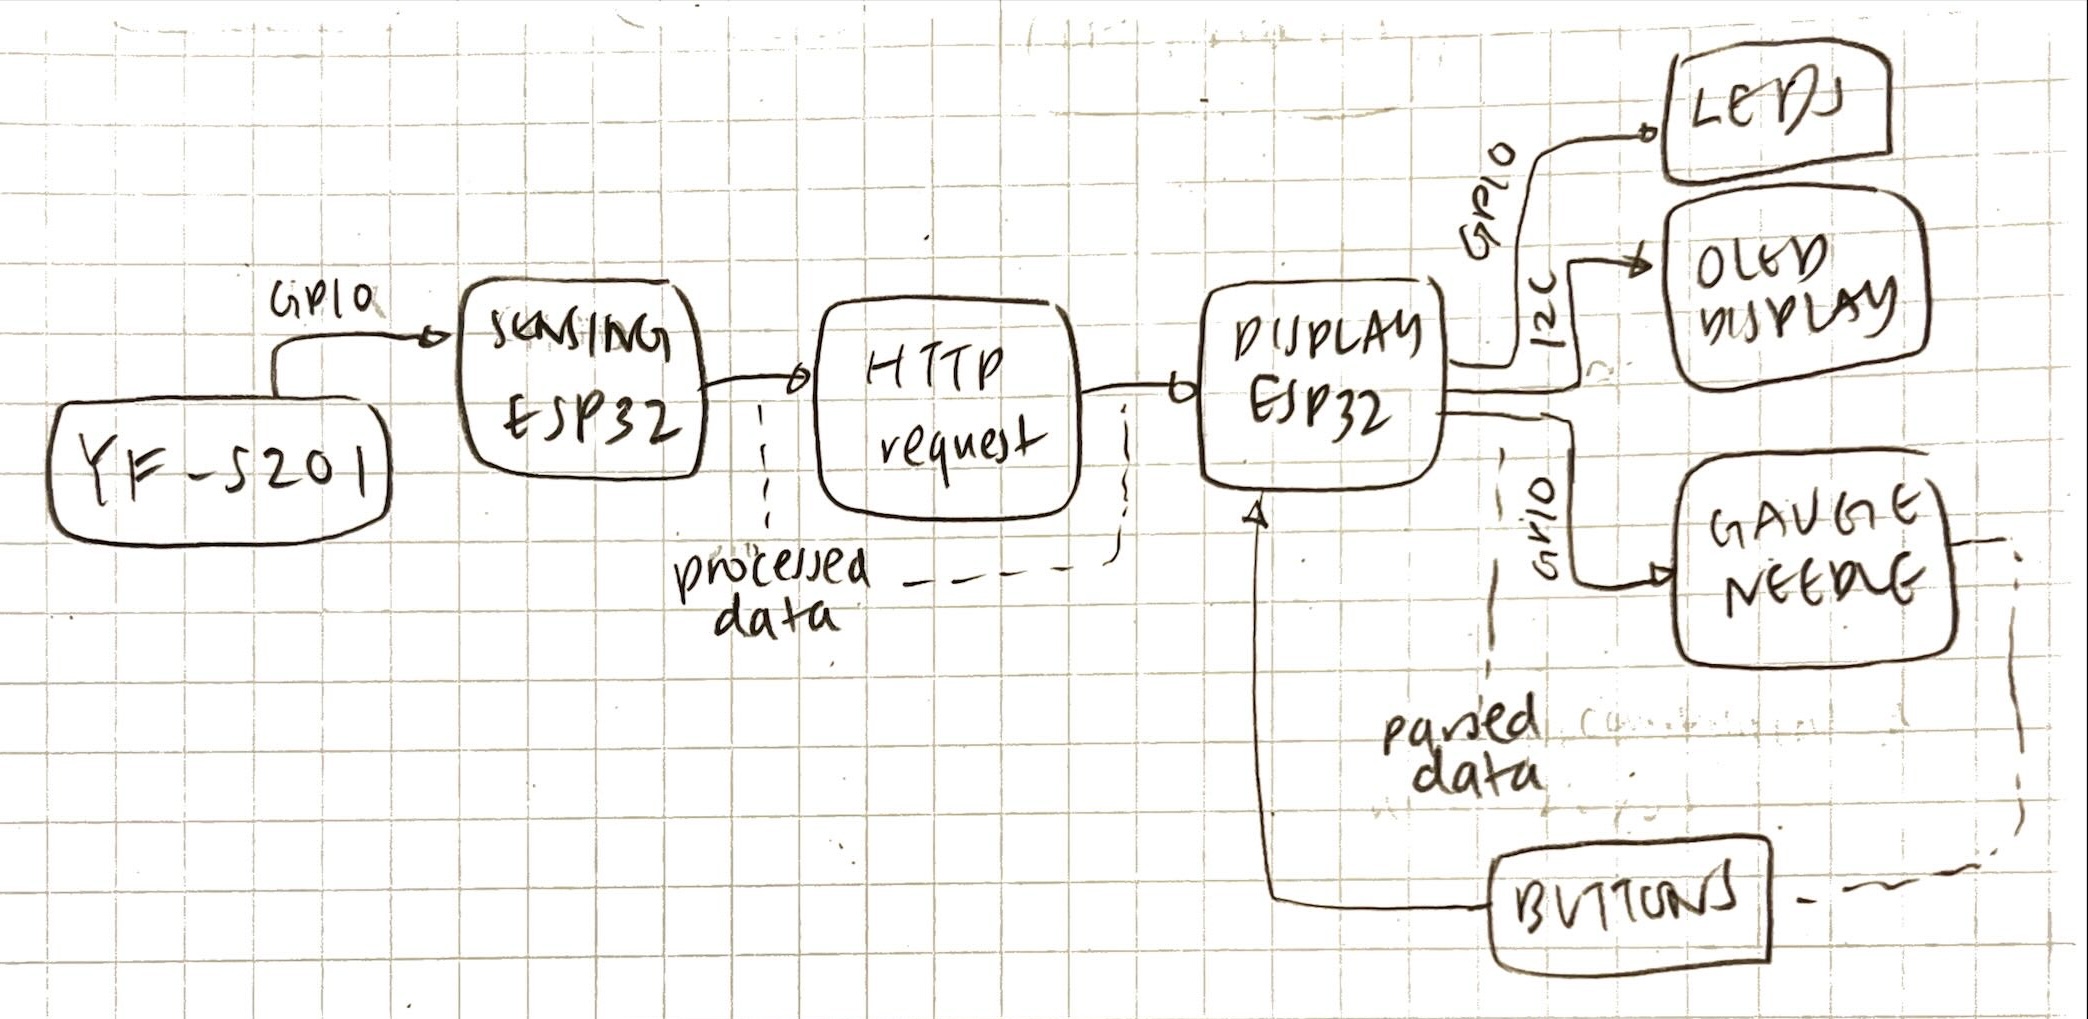 GPIO
YF-S201
SENSING
ESP32
HTTP
request
processed
data
DISPLAY
ESP32
GPIO
I2C
GPIO
LEDS
OLED
DISPLAY
GAUGE
NEEDLE
parsed
data
BUTTONS